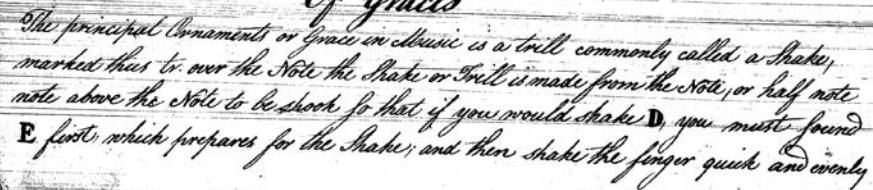 Of Graces
The principal Ornaments or Grace in Music is a trill commonly called a Shake,
marked thus tr. over the Note the Shake or Trill is made from the Note, or half note
note above the Note to be shook so that if you would shake D, you must sound
E first, which prepares for the Shake; and then shake the finger quick and evenly